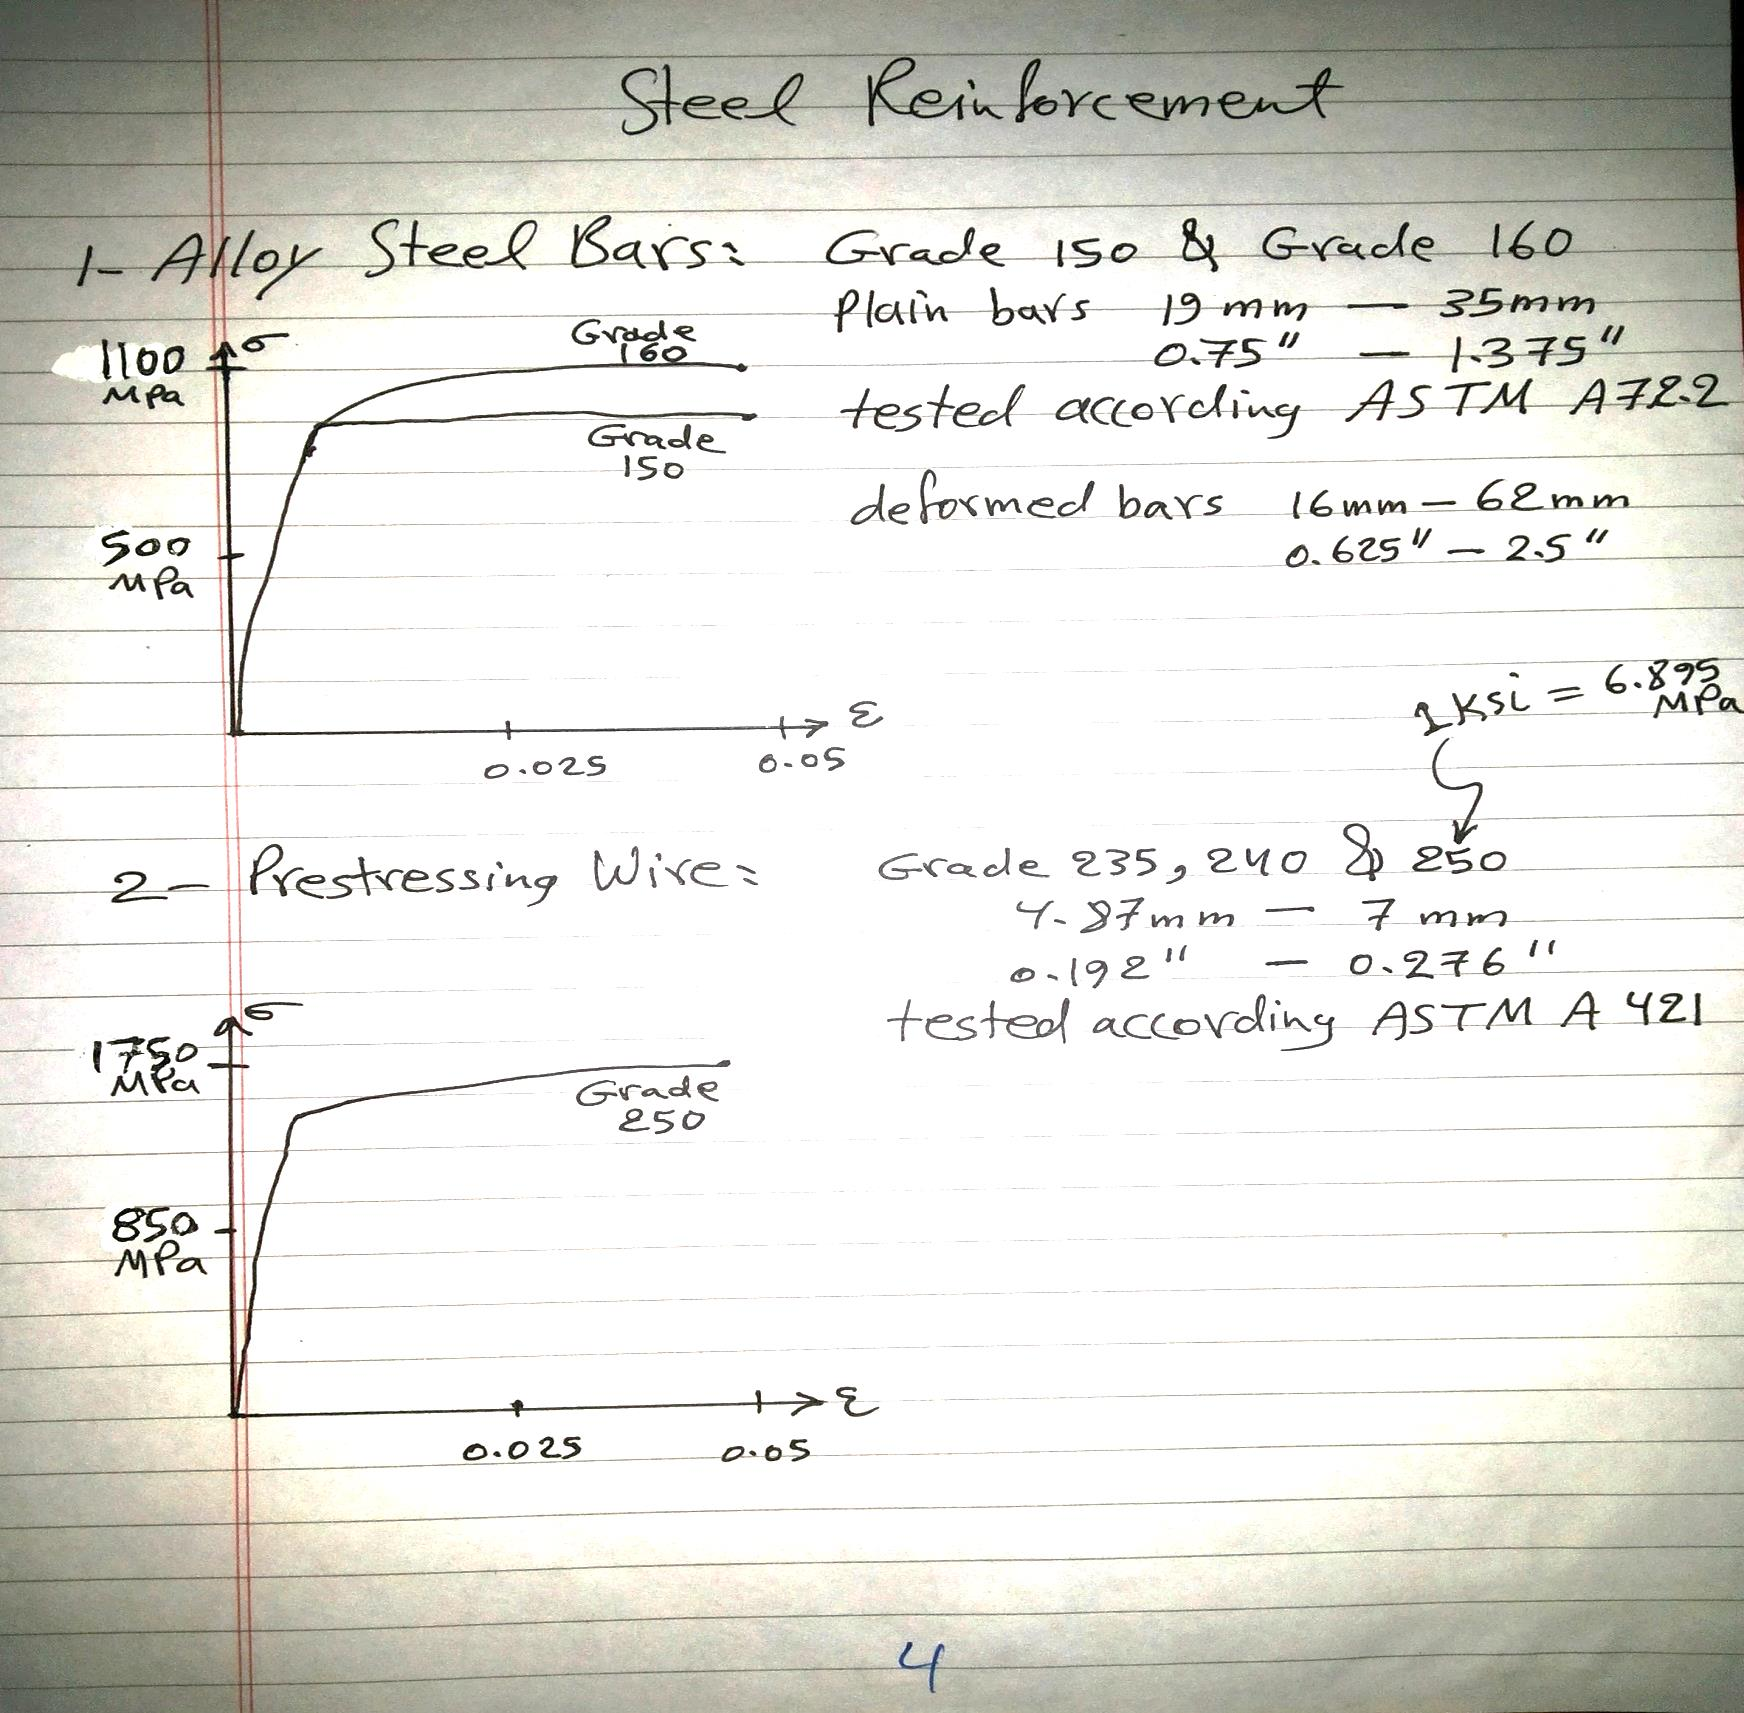 Steel Reinforcement
1- Alloy Steel Bars: Grade 150 & Grade 160
Plain bars 19 mm — 35mm
0.75" — 1.375"
tested according ASTM A722
deformed bars 16mm — 62mm
0.625" — 2.5"
1100
MPa
σ
Grade
160
Grade
150
500
MPa
0.025
0.05
ε
1 ksi = 6.895
MPa
2- Prestressing Wire: Grade 235, 240 & 250
4.87mm — 7 mm
0.192" — 0.276"
tested according ASTM A 421
σ
1750
MPa
Grade
250
850
MPa
0.025
0.05
ε
4